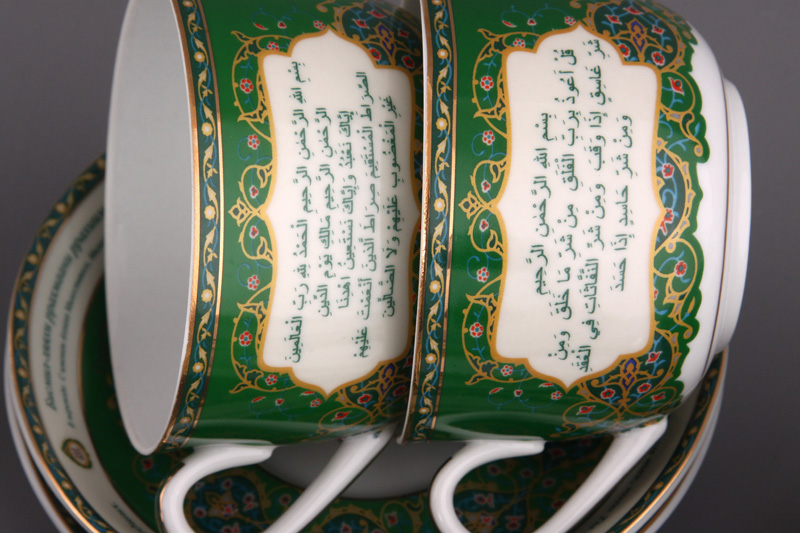 بِسْمِ اللهِ الرَّحْمٰنِ الرَّحِيمِ الْحَمْدُ لِلّٰهِ رَبِّ الْعَالَمِينَ
الرَّحْمٰنِ الرَّحِيمِ مَالِكِ يَوْمِ الدِّينِ
إِيَّاكَ نَعْبُدُ وَإِيَّاكَ نَسْتَعِينُ اهْدِنَا
الصِّرَاطَ الْمُسْتَقِيمَ صِرَاطَ الَّذِينَ أَنْعَمْتَ عَلَيْهِمْ
غَيْرِ الْمَغْضُوبِ عَلَيْهِمْ وَلَا الضَّالِّينَ
بِسْمِ اللهِ الرَّحْمٰنِ الرَّحِيمِ
قُلْ أَعُوذُ بِرَبِّ الْفَلَقِ مِنْ شَرِّ مَا خَلَقَ وَمِنْ
شَرِّ غَاسِقٍ إِذَا وَقَبَ وَمِنْ شَرِّ النَّفَّاثَاتِ فِي الْعُقَدِ
وَمِنْ شَرِّ حَاسِدٍ إِذَا حَسَدَ